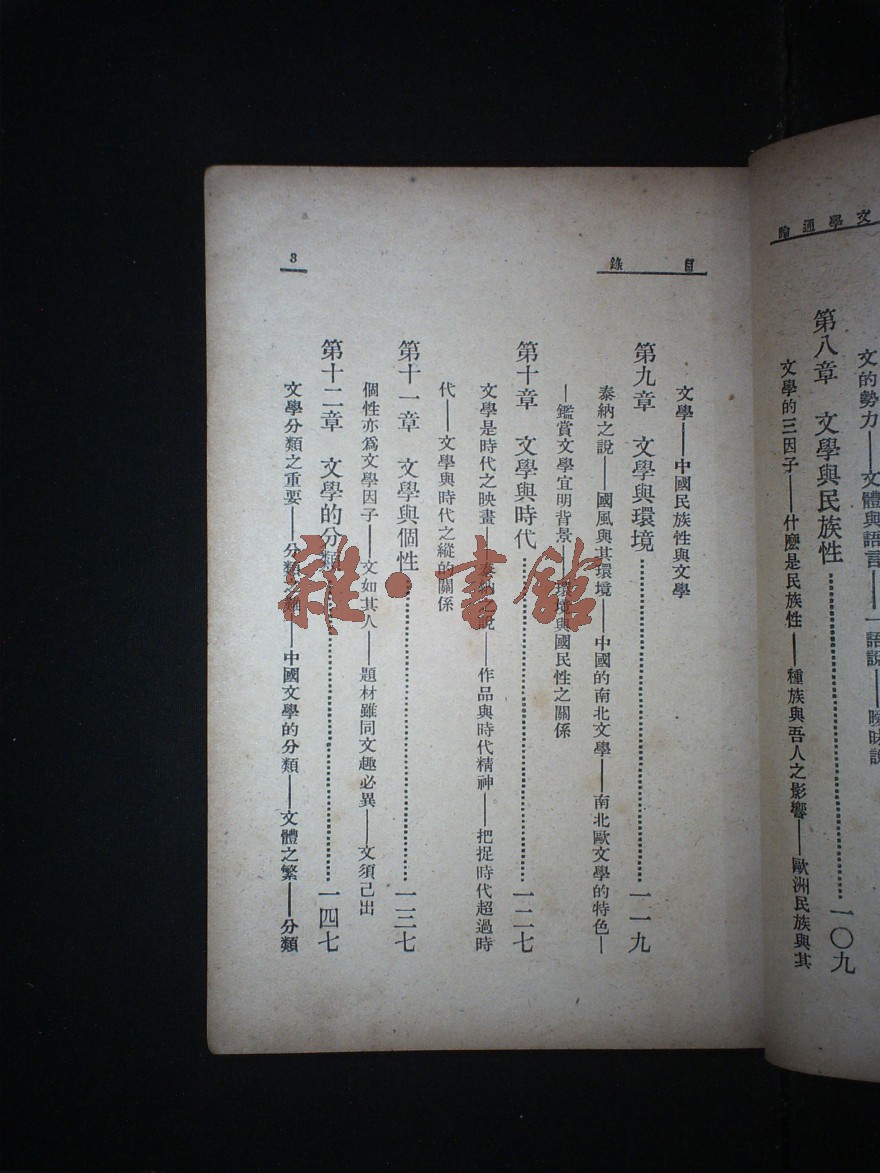 文學通論
文的勢力——文體與語言——一語說——曖昧說
第八章　文學與民族性……一〇九
文學的三因子——什麼是民族性——種族與吾人之影響——歐洲民族與其
目錄
文學——中國民族性與文學
第九章　文學與環境……一一九
泰納之說——國風與其環境——中國的南北文學——南北歐文學的特色—
—鑑賞文學宜明背景——環境與國民性之關係
第十章　文學與時代……一二七
文學是時代之映畫——泰納之說——作品與時代精神——把捉時代超過時
代——文學與時代之縱的關係
第十一章　文學與個性……一三七
個性亦為文學因子——文如其人——題材雖同文趣必異——文須己出
第十二章　文學的分類……一四七
文學分類之重要——分類之難——中國文學的分類——文體之繁——分類
3
雜·書館